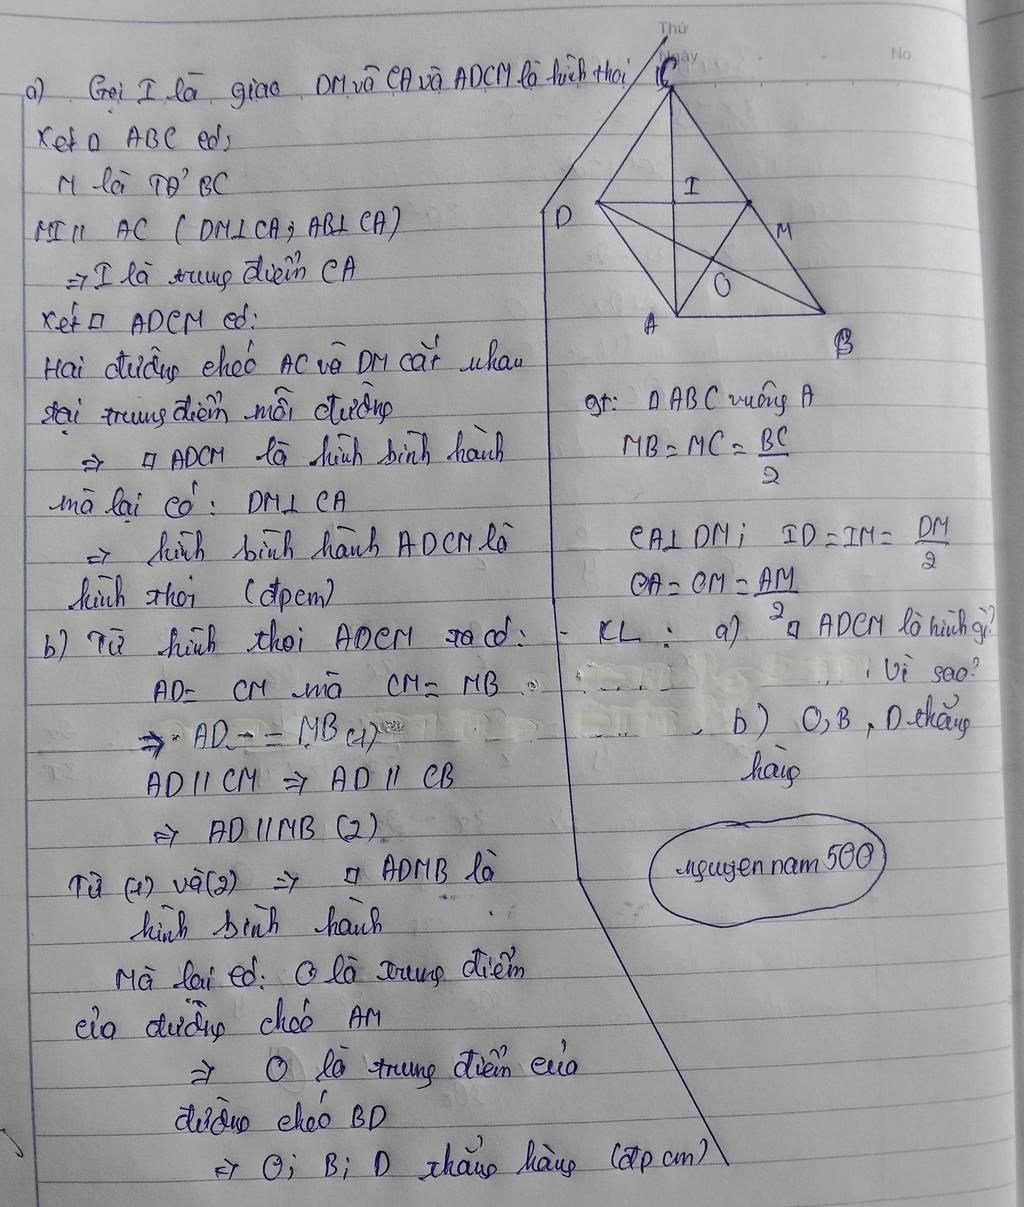 Thứ
Ngày
No
a) Gọi I là giao DM và CA và ADCM là hình thoi
Xét □ ABC có:
M là TĐ' BC
MI // AC (DM⊥CA; AB⊥CA)
⇒ I là trung điểm CA
Xét □ ADCM có:
Hai đường chéo AC và DM cắt nhau
tại trung điểm mỗi đường
⇒ □ ADCM là hình bình hành
mà lại có: DM⊥CA
⇒ hình bình hành ADCM là
hình thoi (đpcm)
b) Từ hình thoi ADCM ta có:
AD = CM mà CM = MB
⇒ AD = MB (1)
AD // CM ⇒ AD // CB
⇒ AD // MB (2)
Từ (1) và (2) ⇒ □ ADMB là
hình bình hành
Mà lại có: O là trung điểm
của đường chéo AM
⇒ O là trung điểm của
đường chéo BD
⇒ O; B; D thẳng hàng (đpcm)
C
I
D
M
O
A
B
gt: □ ABC vuông A
MB = MC = BC/2
CA⊥DM; ID = IM = DM/2
OA = OM = AM/2
- KL: a) □ ADCM là hình gì?
Vì sao?
b) O, B, D thẳng
hàng
nguyennam500